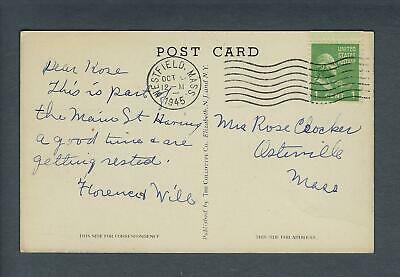 POST CARD
WESTFIELD, MASS.
OCT
12 M
1945
UNITED
STATES
POSTAGE
1 CENT 1
Dear Rose
This is part
the Main St Having
a good time & are
getting rested.
Florence & Will
Mrs Rose Crocker
Osterville
Mass
Published by THE COLLOTYPE Co., Elizabeth, N. J. and N.Y.
THIS SIDE FOR CORRESPONDENCE
THIS SIDE FOR ADDRESS